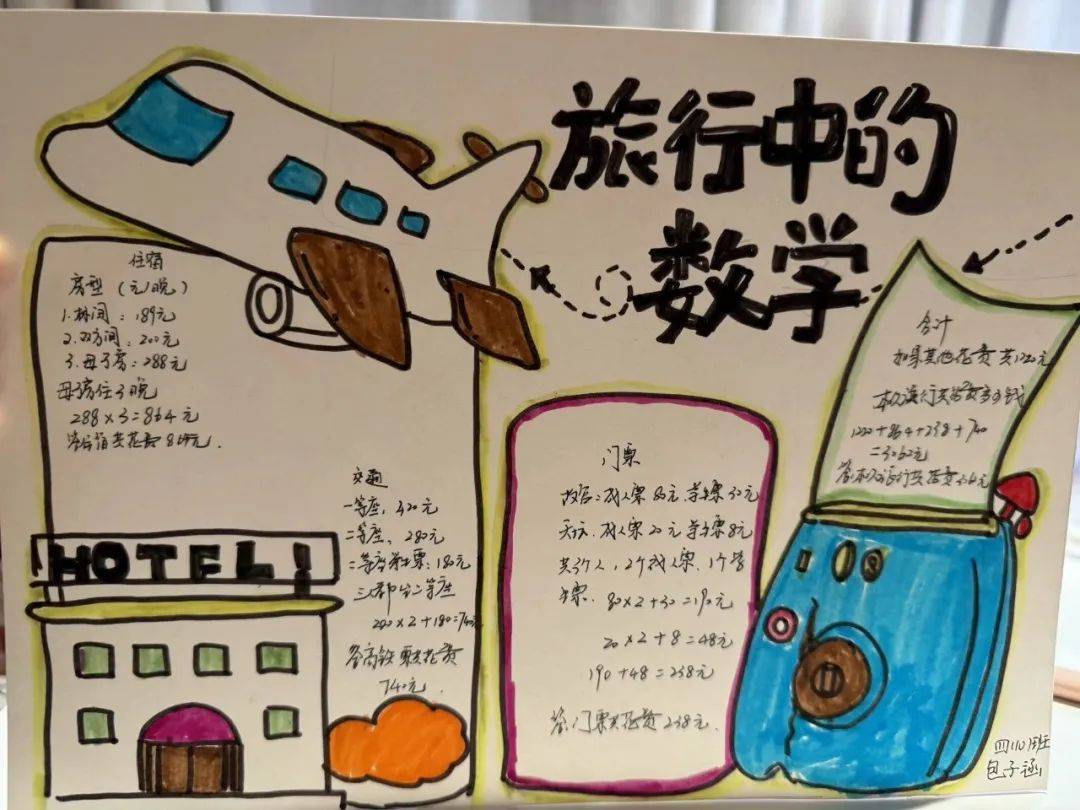 旅行中的
数学
住宿
房型（元/晚）
1.标间：189元
2.双方间：200元
3.母子房：288元
母子房住3晚
288×3=864元
答：住宿共花费864元.
交通
一等座：420元
二等座：280元
二等座学生票：180元
三都台二等座
280×2+180=740元
答高铁票共花费
740元.
HOTEL!
门票
故宫：成人票80元 学生票30元
天坛.成人票20元学生票8元
共3个人，2个成人票.1个学
生票. 80×2+30=190元
20×2+8=48元
190+48=238元
答：门票共花费238元.
合计
如果其他花费共1220元
本次旅行共花费多少钱
1220+864+238+740
=3062元
答：本次旅行共花费
四(10)班
包子涵